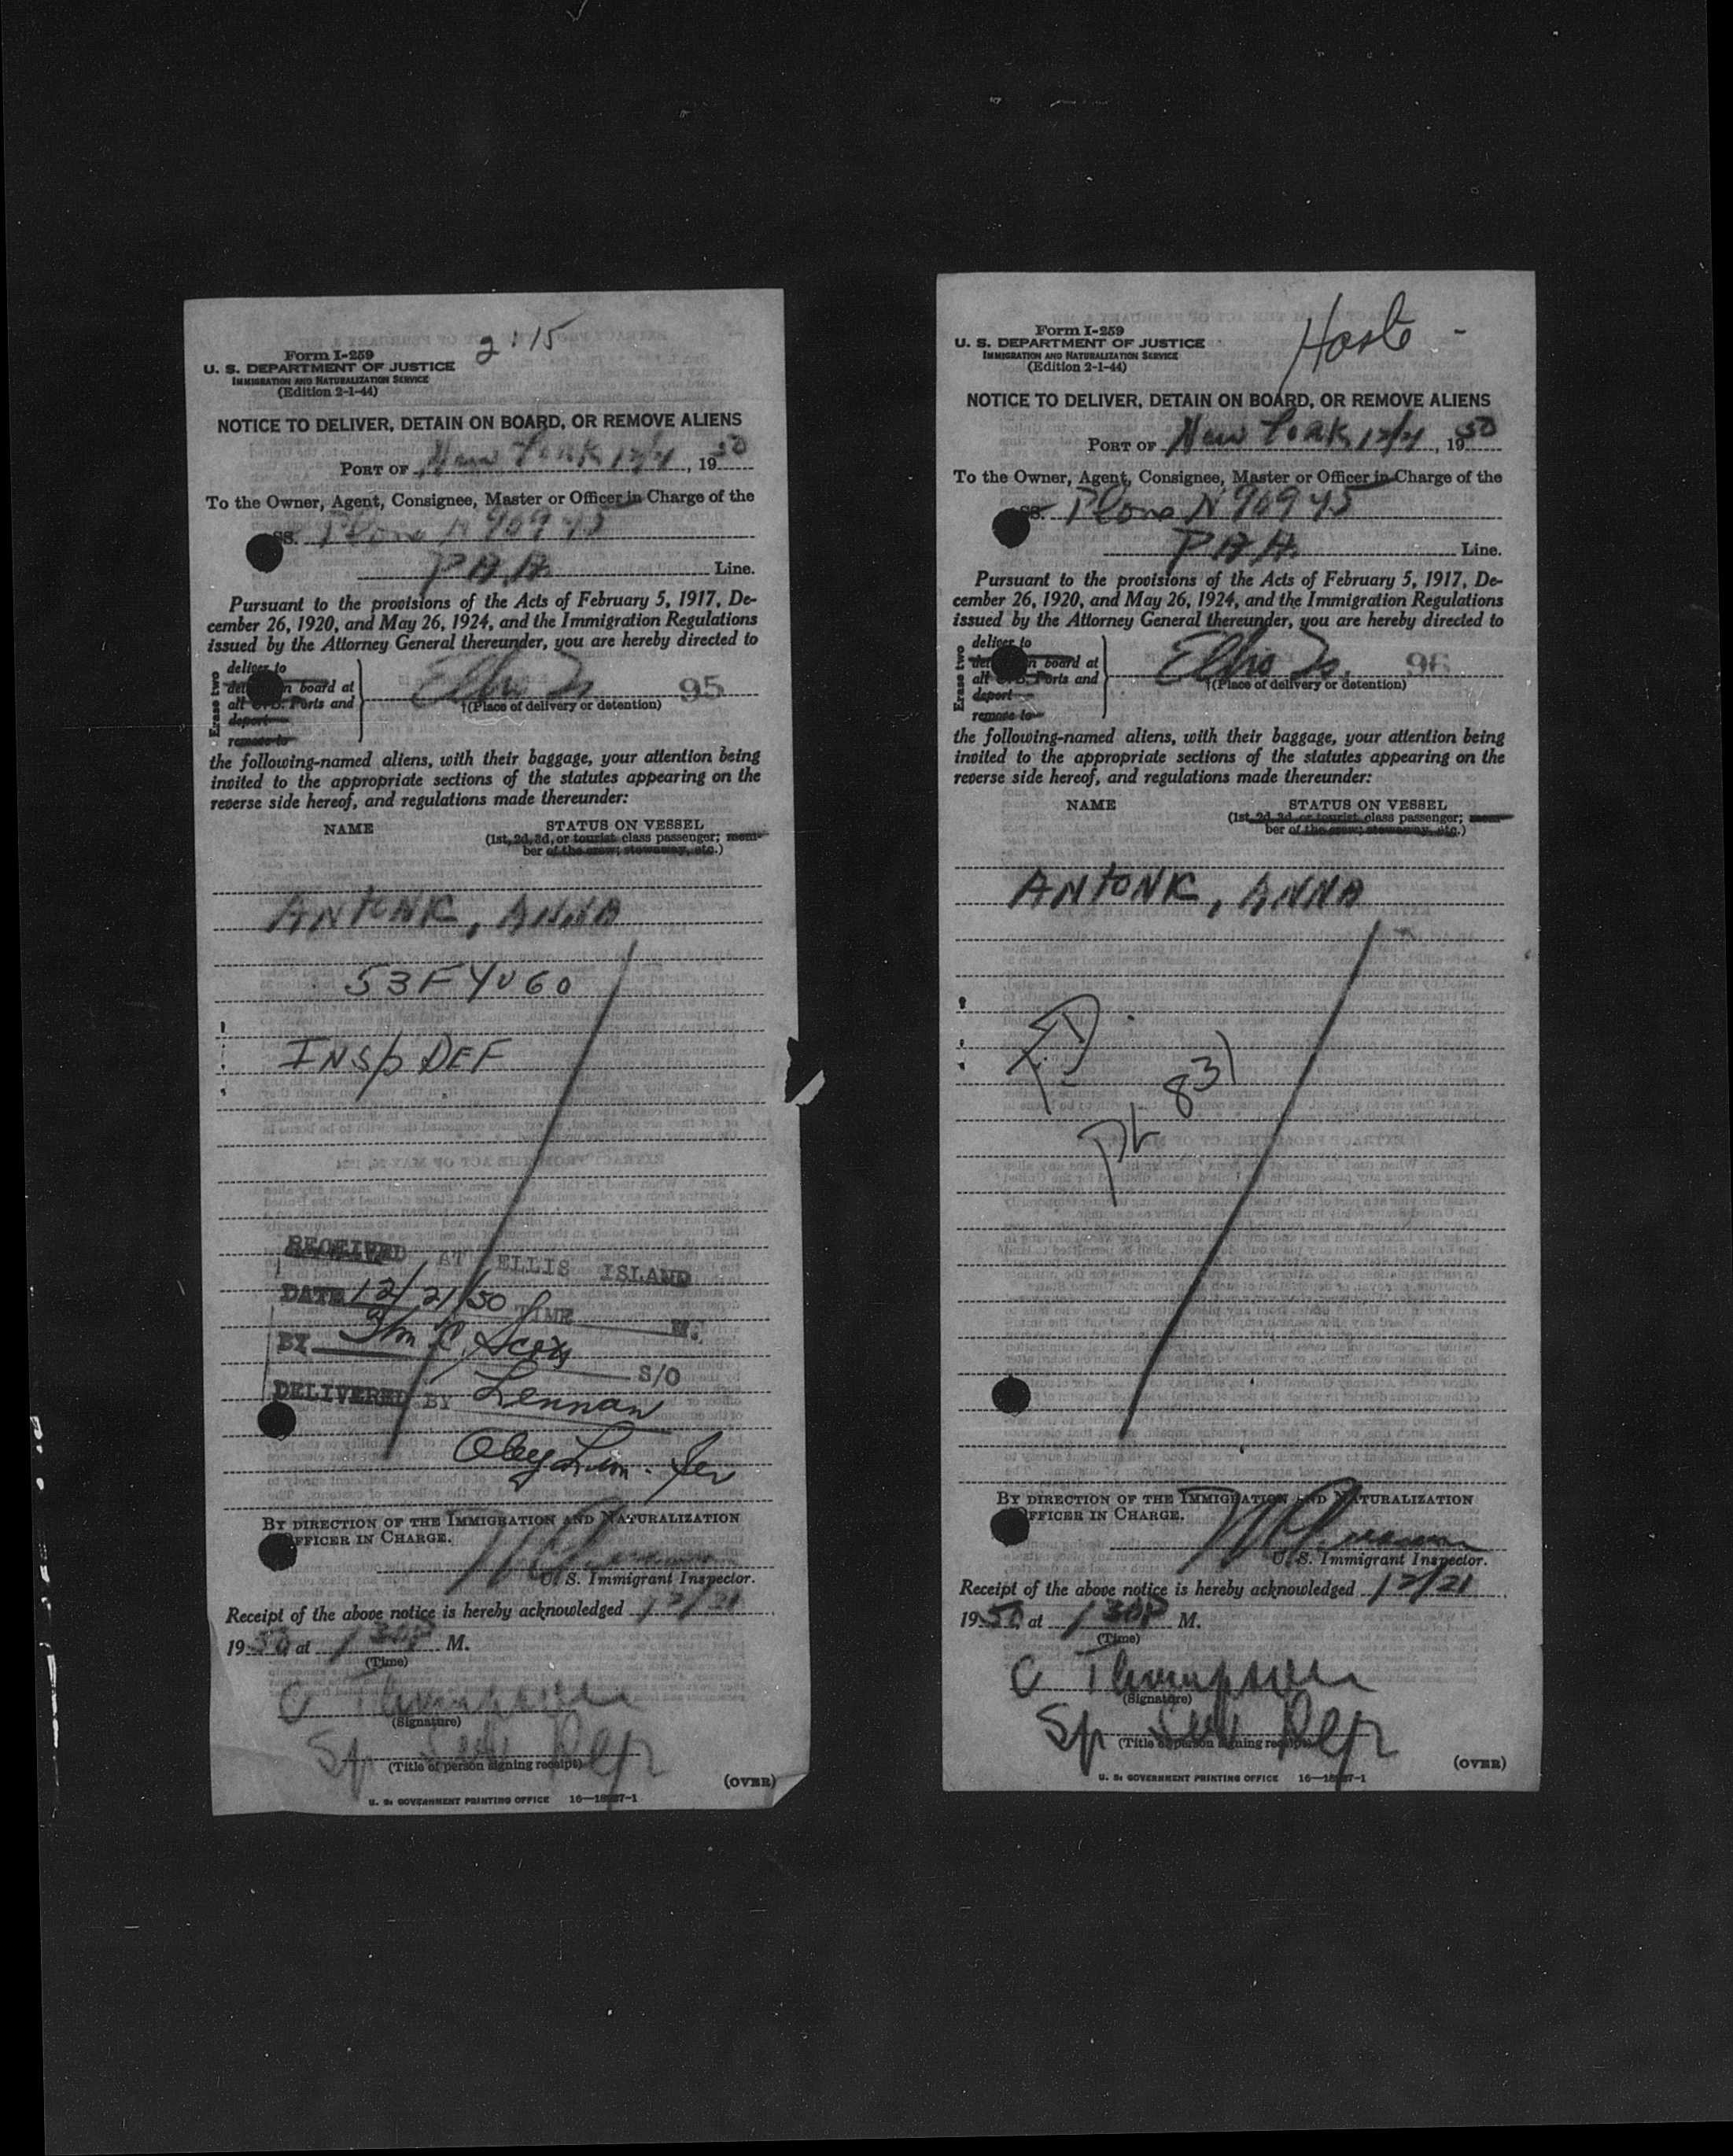 2:15
Form I-259
U. S. DEPARTMENT OF JUSTICE
IMMIGRATION AND NATURALIZATION SERVICE
(Edition 2-1-44)
NOTICE TO DELIVER, DETAIN ON BOARD, OR REMOVE ALIENS
PORT OF New York 12/21, 1950
To the Owner, Agent, Consignee, Master or Officer in Charge of the
SS. Plane N 90945
P.A.A. Line.
Pursuant to the provisions of the Acts of February 5, 1917, De-
cember 26, 1920, and May 26, 1924, and the Immigration Regulations
issued by the Attorney General thereunder, you are hereby directed to
Erase two
deliver to
on board at
all U.S. Ports and
deport
remove to
Ellis Is. 95
†(Place of delivery or detention)
the following-named aliens, with their baggage, your attention being
invited to the appropriate sections of the statutes appearing on the
reverse side hereof, and regulations made thereunder:
NAME STATUS ON VESSEL
(1st, 2d, 3d, or tourist class passenger; mem-
ber of the crew; stowaway, etc.)
ANTONK, ANNA
53 F YUGO
INSP DEF
RECEIVED AT ELLIS ISLAND
DATE 12/21/50 TIME M.
BY S/O
DELIVERED BY Lennan
BY DIRECTION OF THE IMMIGRATION AND NATURALIZATION
OFFICER IN CHARGE.
U. S. Immigrant Inspector.
Receipt of the above notice is hereby acknowledged 12/21
1950, at 1 30P M.
(Time)
C Thompson
(Signature)
Sp Serv Rep
(Title of person signing receipt)
(OVER)
U. S. GOVERNMENT PRINTING OFFICE
Form I-259
U. S. DEPARTMENT OF JUSTICE
IMMIGRATION AND NATURALIZATION SERVICE
(Edition 2-1-44)
NOTICE TO DELIVER, DETAIN ON BOARD, OR REMOVE ALIENS
PORT OF New York 12/21, 1950
To the Owner, Agent, Consignee, Master or Officer in Charge of the
SS. Plane N 90945
P.A.A. Line.
Pursuant to the provisions of the Acts of February 5, 1917, De-
cember 26, 1920, and May 26, 1924, and the Immigration Regulations
issued by the Attorney General thereunder, you are hereby directed to
Erase two
deliver to
on board at
all U.S. Ports and
deport
remove to
Ellis Is. 96
†(Place of delivery or detention)
the following-named aliens, with their baggage, your attention being
invited to the appropriate sections of the statutes appearing on the
reverse side hereof, and regulations made thereunder:
NAME STATUS ON VESSEL
(1st, 2d, 3d, or tourist class passenger; mem-
ber of the crew; stowaway, etc.)
ANTONK, ANNA
831
BY DIRECTION OF THE IMMIGRATION AND NATURALIZATION
OFFICER IN CHARGE.
U. S. Immigrant Inspector.
Receipt of the above notice is hereby acknowledged 12/21
1950, at 1 30P M.
(Time)
C Thompson
(Signature)
Sp Serv Rep
(Title of person signing receipt)
(OVER)
U. S. GOVERNMENT PRINTING OFFICE